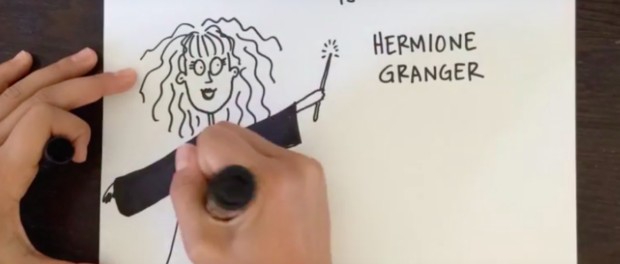 HERMIONE
GRANGER